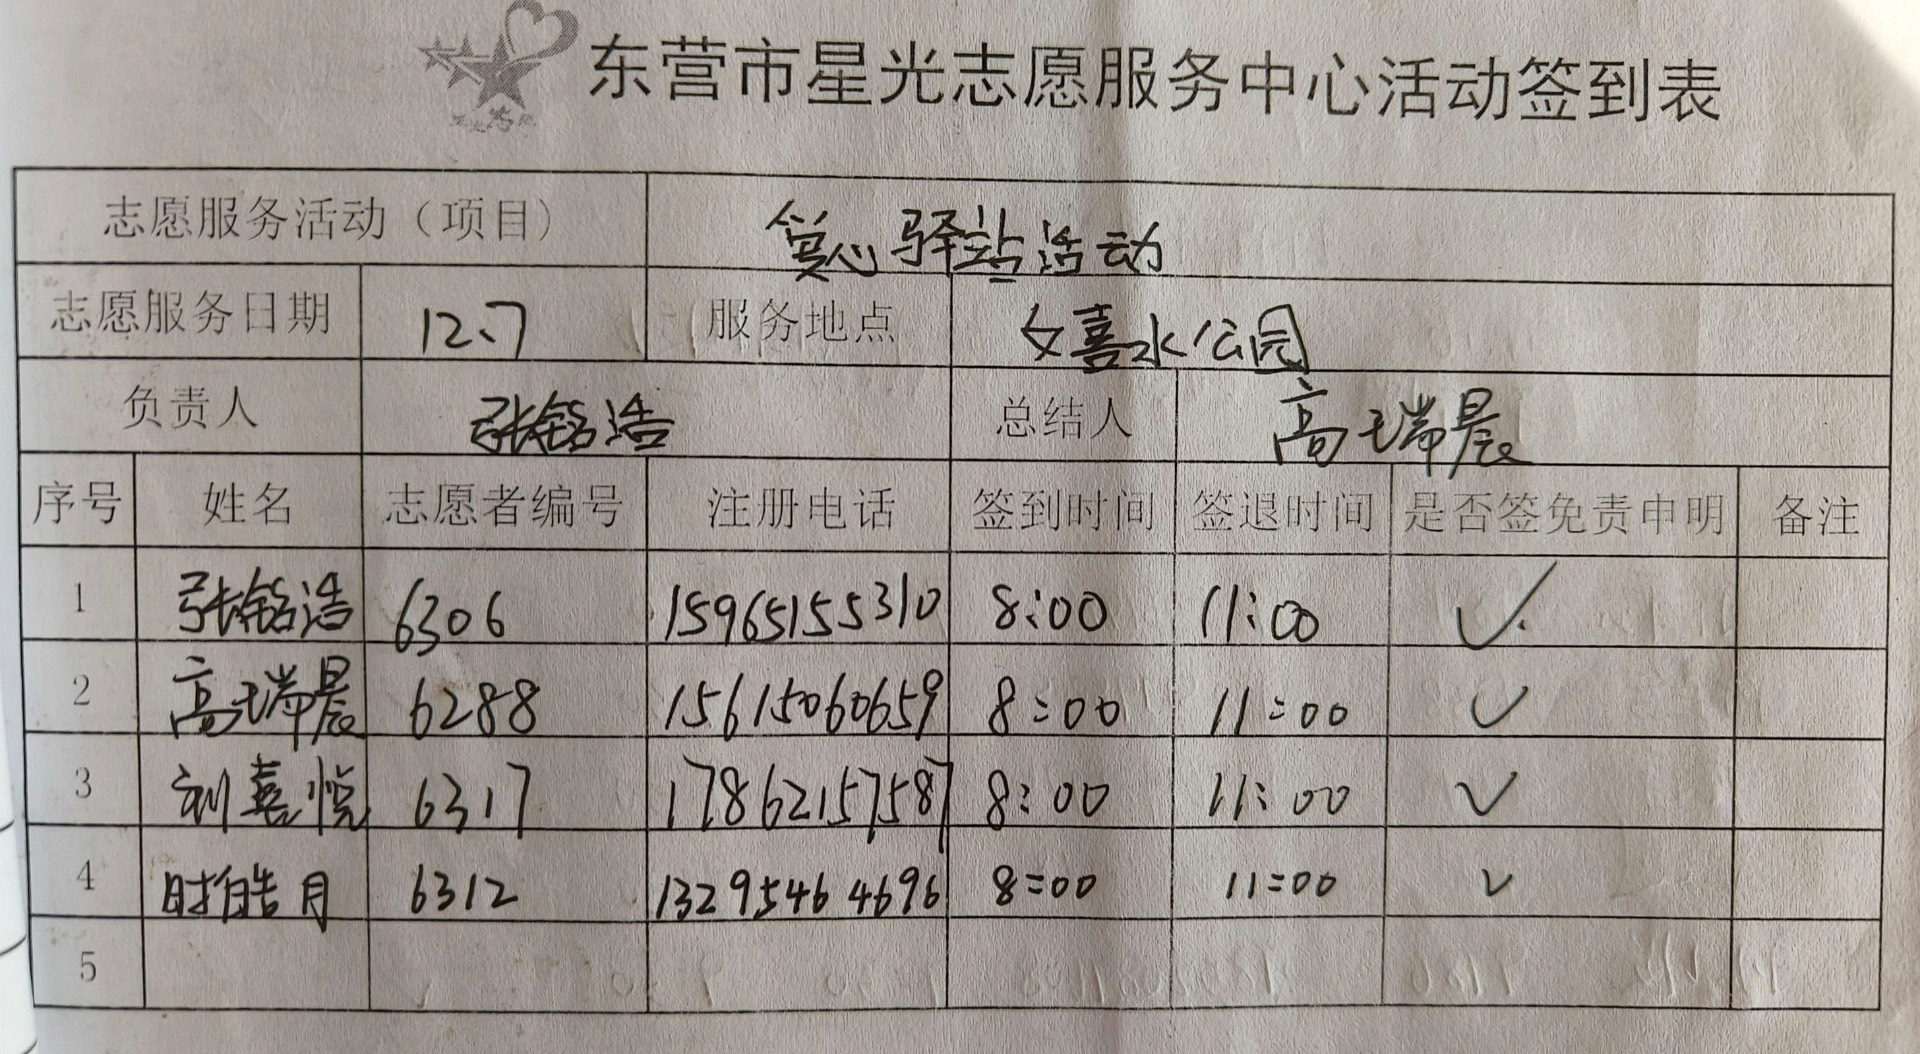 东营市星光志愿服务中心活动签到表
志愿服务活动（项目） 驿站活动
志愿服务日期 12、7 服务地点 文喜水公园
负责人 张铭浩 总结人 高瑞晨
序号 姓名 志愿者编号 注册电话 签到时间 签退时间 是否签免责申明 备注
1 张铭浩 6306 15965155310 8:00 11:00 ✓
2 高瑞晨 6288 15615060659 8:00 11:00 ✓
3 刘喜悦 6317 17862157587 8:00 11:00 ✓
4 时皓月 6312 13295464696 8:00 11:00 ✓
5